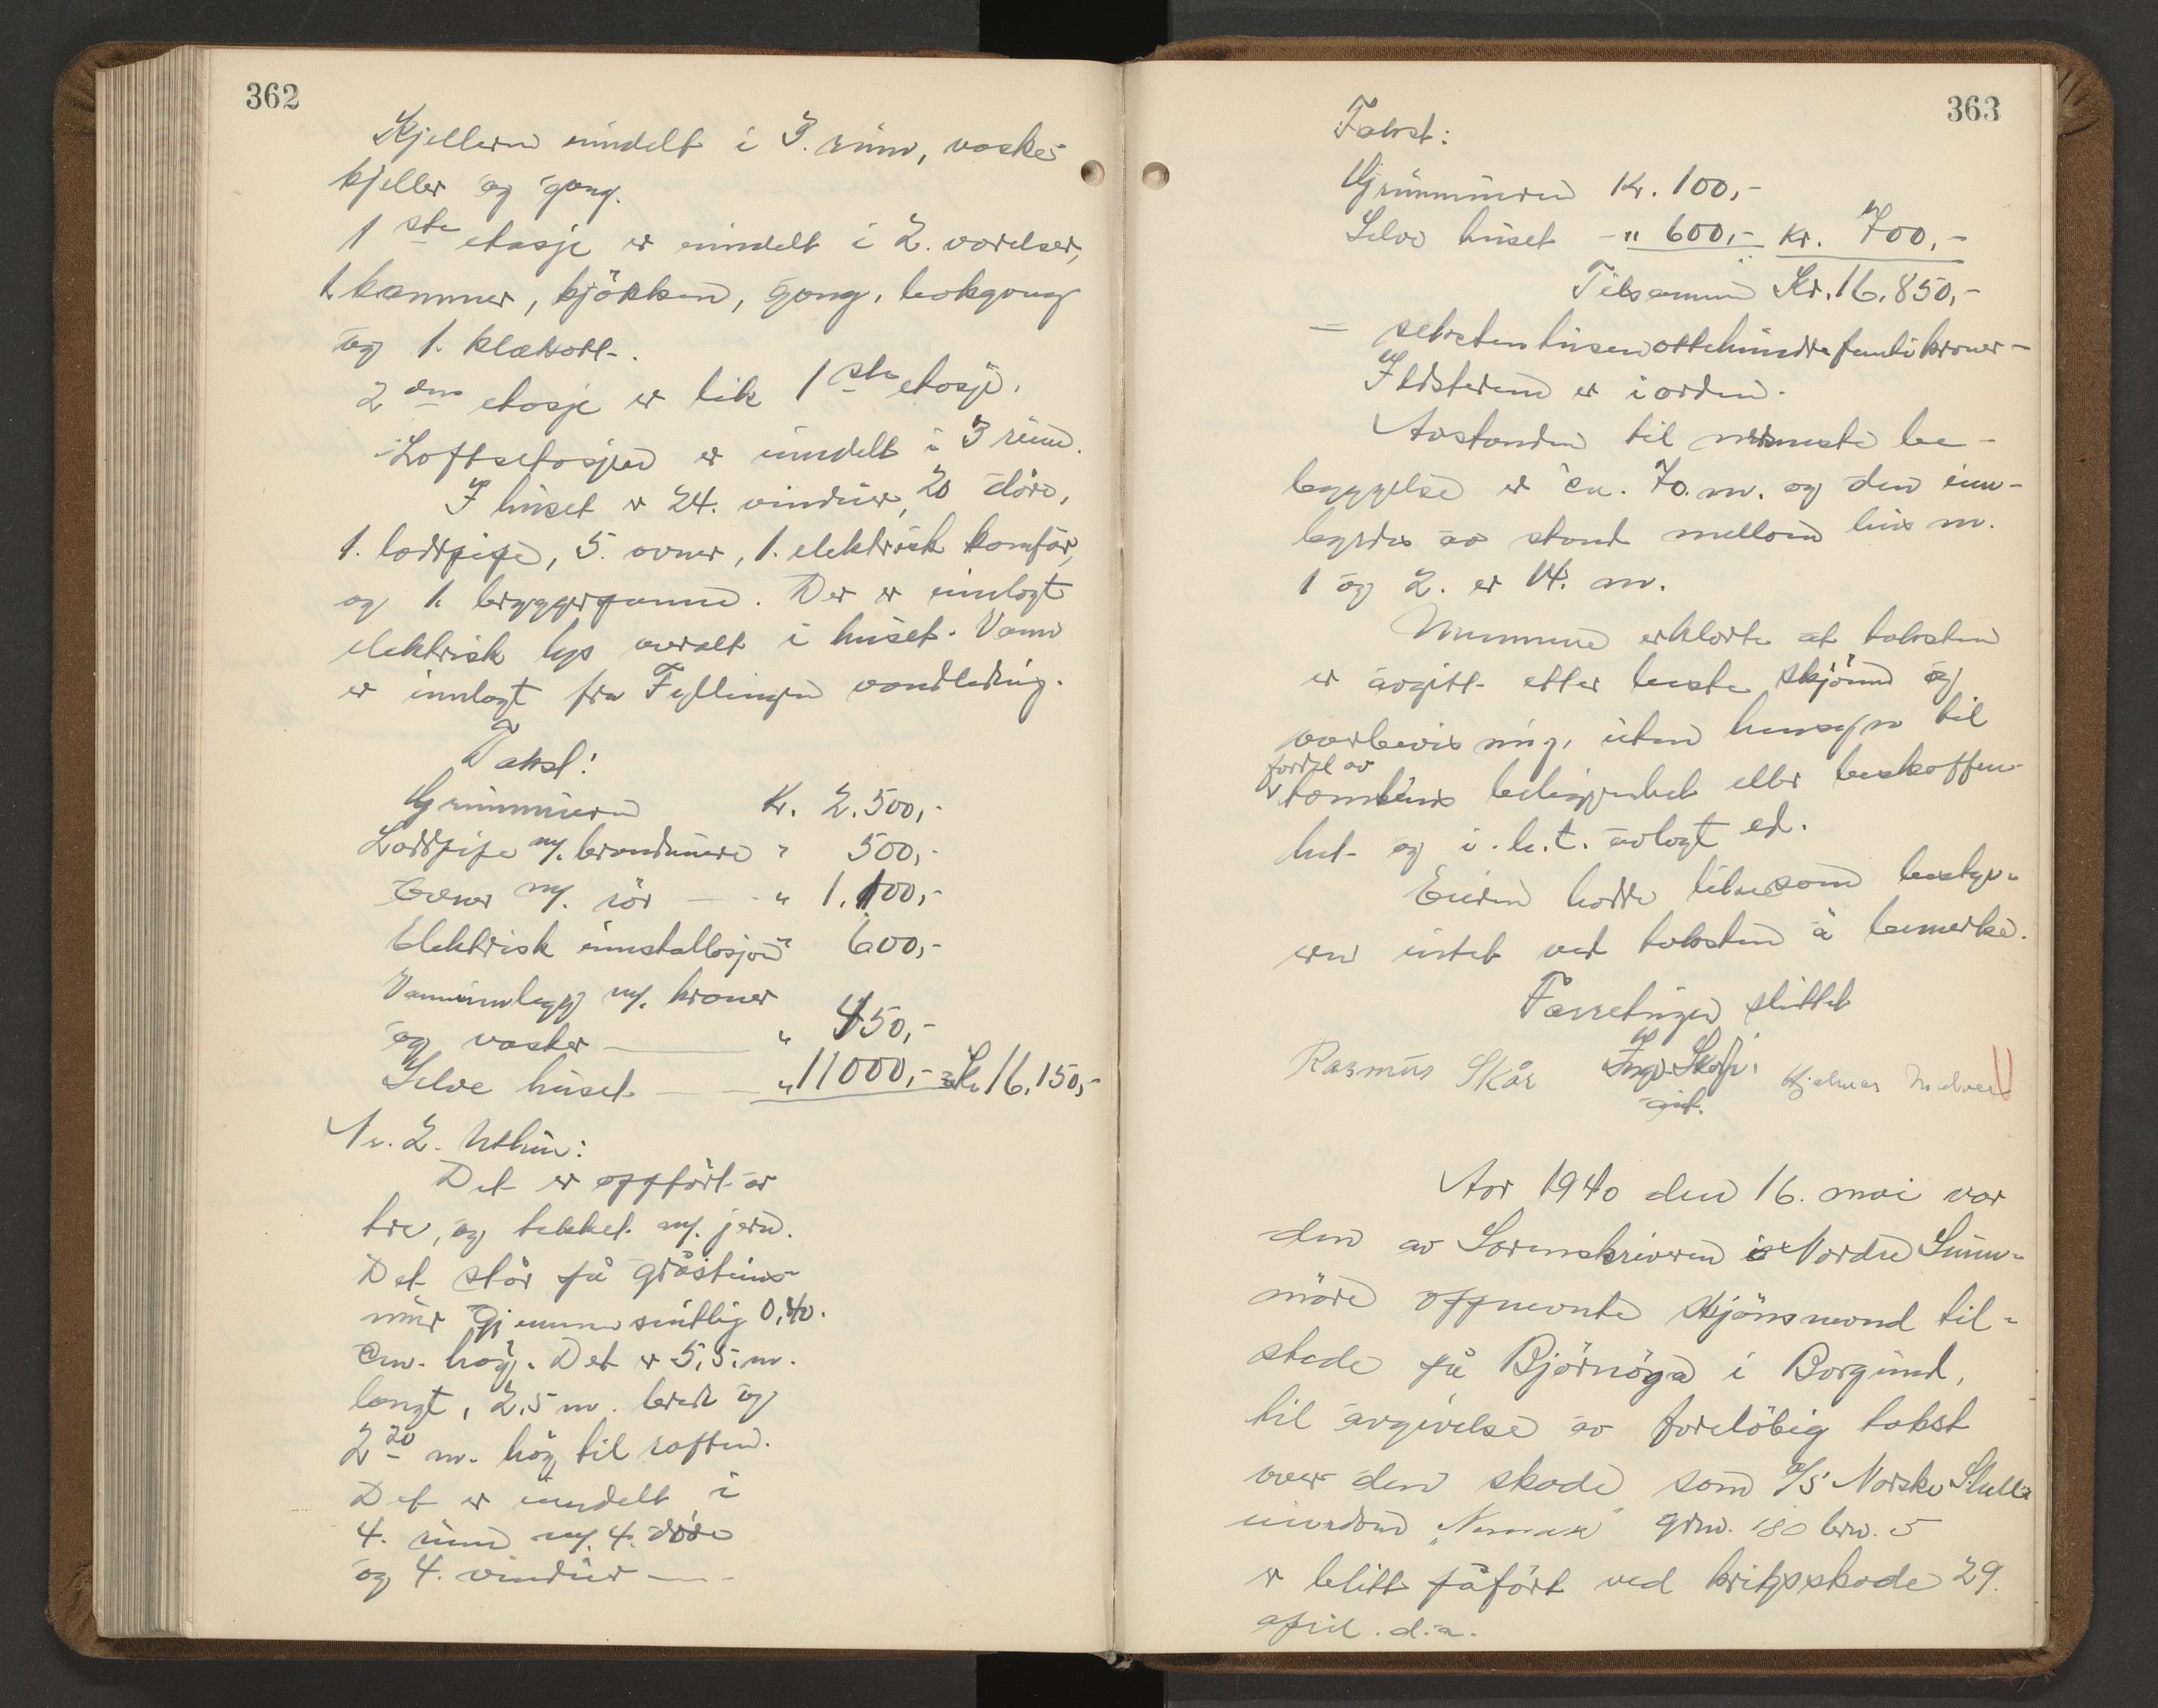 362
Kjelleren inndelt i 3. rum, vaske-
kjeller og gang.
1 ste etasje er inndelt i 2. værelser,
1. kammer, kjökken, gang, bakgang
og 1. klækott.
2 den etasje er lik 1 ste etasje.
Loftsetasjen er inndelt i 3 rum.
I huset er 24. vinduer, 20 döre,
1. loddpipe, 5. ovner, 1. elektrisk komfür,
og 1. bryggepanne. Der er innlagt
elektrisk lys overalt i huset. Vann
er innlagt fra Fyllingen vandledning.
Takst:
Grunnmuren Kr. 2.500,-
Loddpipe m/. brandmure " 500,-
Ovner m/. rör — " 1.100,-
Elektrisk innstallasjon " 600,-
Vanninnlegg m/. kraner
og vasker — " 450,-
Selve huset — " 11000,- = Kr. 16.150,-
Nr. 2. Uthus:
Det er oppfört av
tre, og tekket m/. jern.
Det står på gråsteins-
mur gjennemsnitlig 0,40.
cm. høg. Det er 5,5. m.
langt, 2,5 m. bredt og
2 20 m. hög til raften.
Det er inndelt i
4. rum m/. 4. döre
og 4. vinduer —
363
Takst:
Grunnmuren Kr. 100,-
Selve huset - " 600,- Kr. 700,-
Tilsammen Kr. 16.850,-
= sekstentusenottehundrefemtikroner -
Ildstedene er i orden.
Avstanden til nermeste be-
byggelse er ca. 70. m. og den inn-
byrdes av stand mellom hus nr.
1 og 2. er 14. m.
Mennene erklærte at taksten
er avgitt etter beste skjönn og
overbevisning, uten hensyn til
fordel av
tomtens beliggenhet eller beskaffen-
het og i. h. t. avlagt ed.
Eieren hadde likesom besty-
eren intet ved taksten å bemerke.
Forretningen sluttet
Rasmus Skår Ingv. Hjalmar
Aar 1940 den 16. mai var
den av Sorenskriveren i Nordre Sunn-
möre oppnevnte skjönsmend til-
stede på Björnöya i Borgund,
til avgivelse av forelöbig takst
over den skade som A/S Norske Shell's
eiendom gnr. 180 brn. 5
er blitt påfört ved krigsskade 29.
april. d.a.